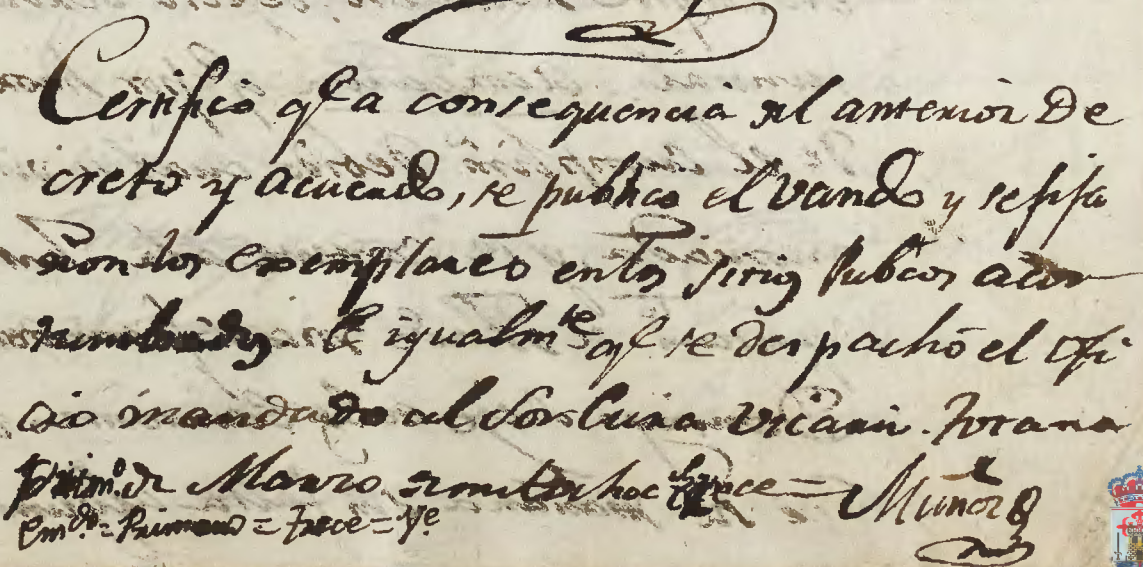 Certifico q.e a consequencia del anterior De
creto y acuerdo, se publico el vando y se fija
ron los exemplares en los sitios Pubcos acos
tumbrados. E igualm.te q.e se despachó el ofi
cio mandado al Sor Cura Vicario. Totana
prim.o de Marzo de mil ochoc.s trece = Muñoz
Em.do = Primero = trece = V.e